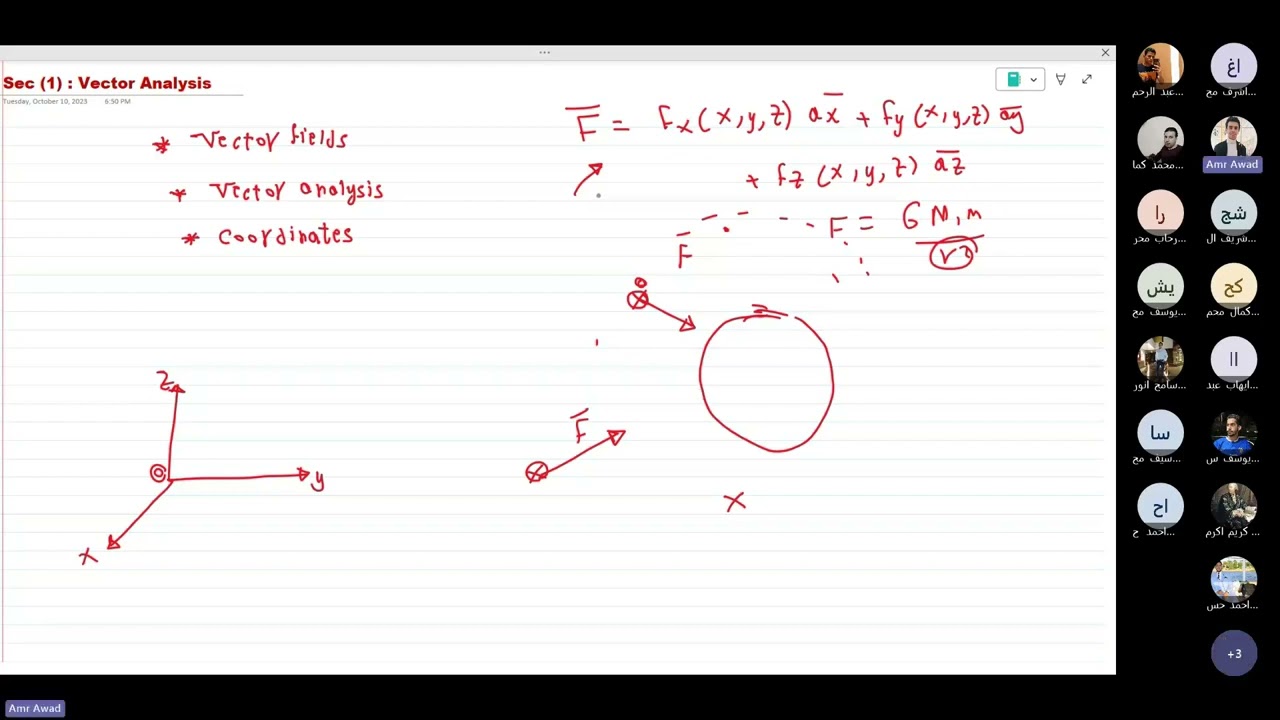 Sec (1) : Vector Analysis
Tuesday, October 10, 2023 6:50 PM
* Vector fields
* Vector analysis
* Coordinates
F̅ = fx(x,y,z) a̅x̅ + fy(x,y,z) a̅y̅
+ fz(x,y,z) a̅z̅
F̅
F = G M.m
r2
F̅
z
y
x
x
عبد الرحم...
اغ
اشرف مح...
محمد كما...
Amr Awad
را
رحاب محر...
شج
شريف ال...
يش
يوسف مح...
كح
كمال محم...
سامح انور...
اا
ايهاب عبد...
سا
سيف مح...
يوسف س...
اح
احمد ح...
كريم اكرم...
احمد حس...
+3
Amr Awad